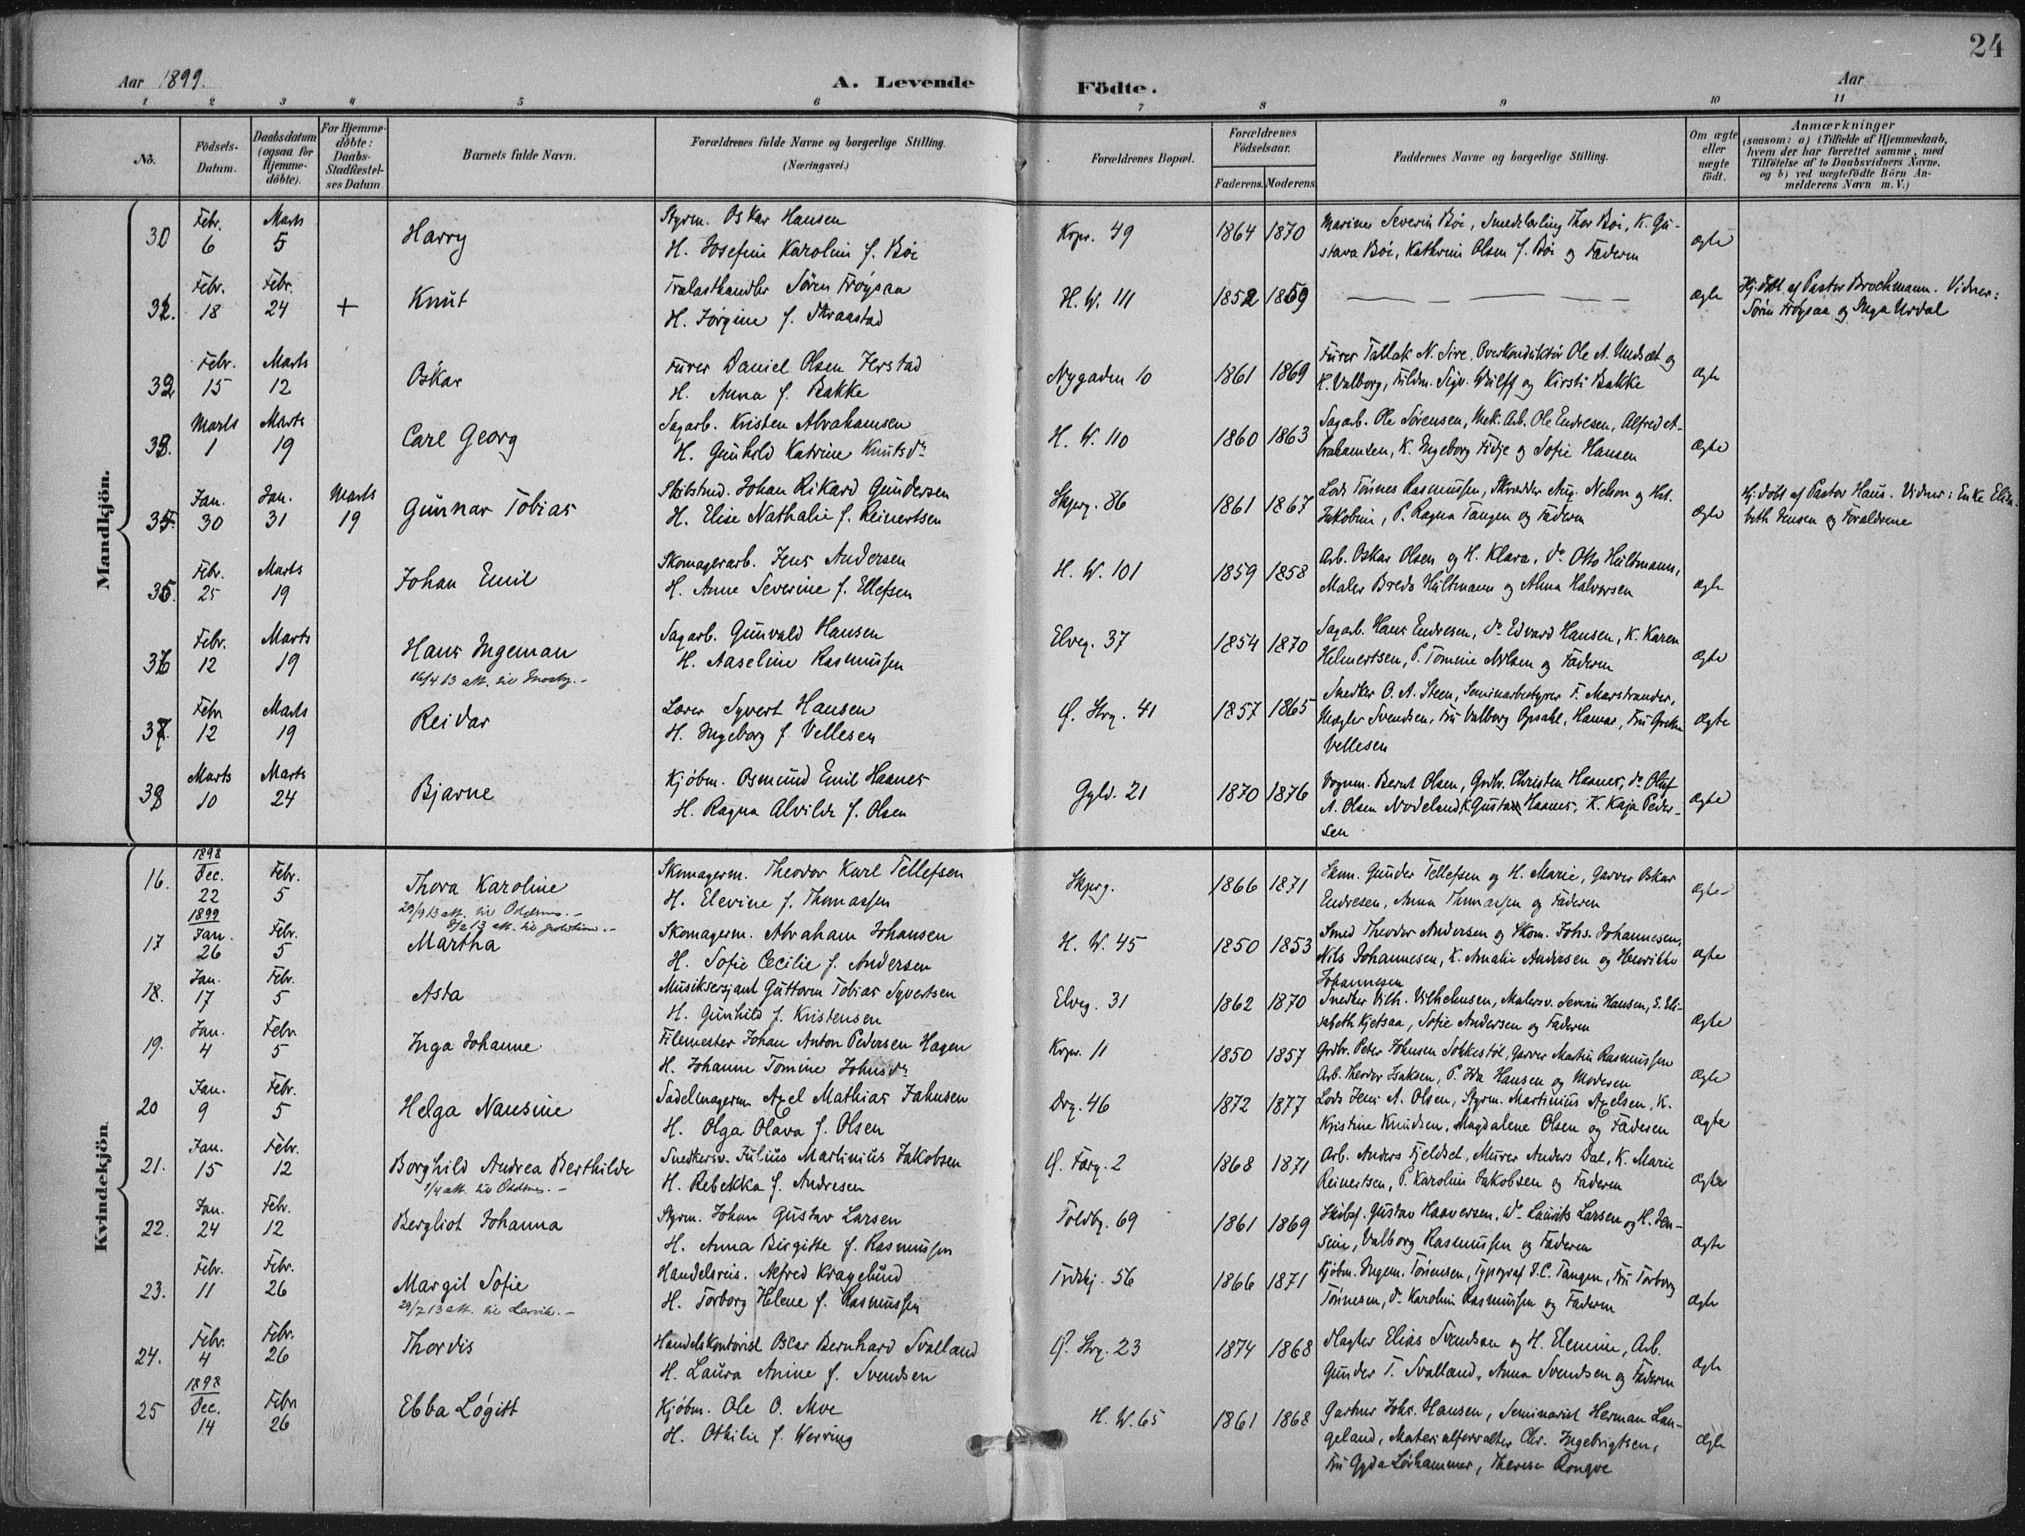 24
Aar 1899.
A. Levende
Födte.
Aar
1 2 3 4 5 6 7 8 9 10 11
No.
Födsels-
Datum.
Daabsdatum
(ogsaa for
Hjemme-
döbte).
For Hjemme-
döbte:
Daabs-
Stadfæstel-
ses Datum
Barnets fulde Navn.
Forældrenes fulde Navne og borgerlige Stilling.
(Næringsvei.)
Forældrenes Bopæl.
Forældrenes
Födselsaar.
Faderens. Moderens
Faddernes Navne og borgerlige Stilling.
Om ægte
eller
uægte
födt.
Anmærkninger
(saasom: a) i Tilfælde af Hjemmedaab,
hvem der har forrettet samme, med
Tilföielse af to Daabsvidners Navne,
og b) ved uægtefödte Börn An-
melderens Navn m. V.)
Mandkjön.
30 Febr. 6 Marts 5 Harry
Styrm. Oskar Hansen
H. Josefine Karoline f. Bøe
Krpr. 49 1864 1870
Severin Bøi, Smedelærling Thor Bøi, K. Gu-
stava Bøi, Kathrine Olsen f. Bøi og Faderen
ægte
Febr. 18 Febr. 24 + Knut
Trælasthandler Søren Frøysaa
H. Jørgine f.
H. W. 111 1852 1859
ægte
Hj.døbt af Pastor Brochmann. Vidner:
Søren Frøysaa og Inga Urdal
Febr. 15 Marts 12 Oskar
Furer Daniel Olsen Jerstad
H. Anna f. Bakke
Nygaden 10 1861 1869
Furer Tallak N. Sire, Overkonduktør Ole A. Undsæt og
K. Valborg, Fuldm. Sigv. Wulff og Kirsti Bakke
ægte
Marts 1 Marts 19 Carl Georg
Sagarb. Kristen Abrahamsen
H. Gunhild Katrine Knutsdr
H. W. 110 1860 1863
Sagarb. Ole Sørensen, Mek. Arb. Ole Endresen, Alfred A-
brahamsen, K. Ingeborg Fidje og Sofie Hansen
ægte
Jan. 30 Jan. 31 Marts 19 Gunnar Tobias
Skibstmd. Johan Rikard Gundersen
H. Elise Nathalie f. Reinertsen
Skjerg. 86 1861 1867
Lods Tønnes Rasmussen, Skrædder Aug. Nelson og Hst.
Jakobine, P. Ragna Tangen og Faderen
ægte
Hj. døbt af Pastor Haus. Vidner: Enke Elisa-
beth Jensen og Forældrene
Febr. 25 Marts 19 Johan Emil
Skomagerarb. Jens Andersen
H. Anne Severine f. Ellefsen
H. W. 101 1859 1858
Arb. Oskar Olsen og H. Klara, do Otto Hultmann,
Maler Bredo Hultmann og Alma Halvorsen
ægte
Febr. 12 Marts 19 Hans Ingeman
16/4 13 att. til Mosby.-
Sagarb. Gunvald Hansen
H. Aaseline Rasmussen
Elveg. 37 1854 1870
Sagarb. Hans Endresen, do Edvard Hansen, K. Karen
Helmertsen, P. Tomine Nilsen og Faderen
ægte
37. Febr 12 Marts 19 Reidar
Lærer Syvert Hansen
H. Ingeborg f. Vellesen
Ø. Strg. 41 1857 1865
Snedker O. A. Steen, Seminarbestyrer F. Marstrander,
Mægler Svendsen, Fru Valborg Opsahl, Hamar, Fru
Vellesen
ægte
38 Marts 10 Marts 24 Bjarne
Kjøbm. Osmund Emil Haanes
H. Ragna Alvilde f. Olsen
Gyld. 21 1870 1876
Vognm. Bernt Olsen, Grdbr. Christen Haanes, do Oluf
A. Olsen Nodeland, K. Gustava Haanes, K. Kaja Peder-
sen
ægte
Kvindekjön
16. 1898 Dec. 22 Febr. 5 Thora Karoline
29/9 13 att. til Oddernes.-
Skomagerm. Theodor Karl Tellefsen
H. Elevine f. Thomassen
Skjerg. 1866 1871
Skom. Gunder Tellefsen og H. Marie, Garver Oskar
Endresen, Anna Thomassen og Faderen
ægte
17 1899 Jan. 26 Febr. 5 Martha
Skomagerm. Abraham Johansen
H. Sofie Cecilie f. Andersen
H. W. 45 1850 1853
Smed Theodor Andersen og Skom. Johs. Johannesen,
Nils Johannesen, K. Amalie Andersen og Henrikke
Johannesen
ægte
18. Jan. 17 Febr. 5 Asta
Musiksersjant Guttorm Tobias Syvertsen
H. Gunhild f. Kristensen
Elveg. 31 1862 1870
Snedker Vilh. Vilhelmsen, Malersv. Severin Hansen, E. Eli-
sabeth Kjetsaa, Sofie Andersen og Faderen
ægte
19. Jan. 4 Febr. 5 Inga Johanne
Filemester Johan Anton Pedersen Hagen
H. Johanne Tomine Johnsdr
Krpr. 11 1850 1857
Grdbr. Peter Johnsen Sokkestøl, Garver Martin Rasmussen
Arb. Theodor Isaksen, P. Ida Hansen og Moderen
ægte
20 Jan. 9 Febr. 5 Helga Nansine
Sadelmagerm. Axel Mathias Jahnsen
H. Olga Olava f. Olsen
Drg. 46 1872 1877
Lods Jens A. Olsen, Styrm. Martinius Axelsen, K.
Kristine Knudsen, Magdalene Olsen og Faderen
ægte
21. Jan. 15 Febr. 12 Borghild Andrea Berthilde
1/4 att. til Oddernes.-
Snedkersv. Julius Martinius Jakobsen
H. Rebekka f. Andresen
Ø. Farg. 2 1868 1871
Arb. Anders Fjeldset, Murer Anders Dal, K. Marie
Reinertsen, P. Karoline Jakobsen og Faderen
ægte
22. Jan. 24 Febr. 12 Bergliot Johanna
Styrm. Johan Gustav Larsen
H. Anna Birgitte f. Rasmussen
Toldbg. 69 1861 1869
Skibsf. Gustav Haaversen, do Laurits Larsen og H. Jen-
sine, Valborg Rasmussen og Faderen
ægte
23. Febr. 11 Febr. 26 Margit Sofie
29/7 13 att. til Larvik.-
Handelsreis. Alfred Kragelund
H. Torborg Helene f. Rasmussen
Trdskj. 56 1866 1871
Kjøbm. Ingem. Tønnesen, Typograf J.C. Tangen, Fru Torborg
Tønnesen, do Karoline Rasmussen og Faderen
ægte
24. Febr. 4 Febr. 26 Thordis
Handelskontorist Oscar Bernhard Svalland
H. Laura Anine f. Svendsen
Ø. Strg. 23 1874 1868
Slagter Elias Svendsen og H. Elenine, Arb.
Gunder T. Svalland, Anna Svendsen og Faderen
ægte
25 1898 Dec. 14 Febr 26 Ebba Løgitt
Kjøbm. Ole O. Moe
H. Othilie f. Werring
H. W. 65 1861 1868
Gartner Johs. Hansen, Seminarist Herman Lan-
geland, Materialforvalter Chr. Ingebrigtsen,
Fru Gyda Lørhammer, Therese Rongve
ægte